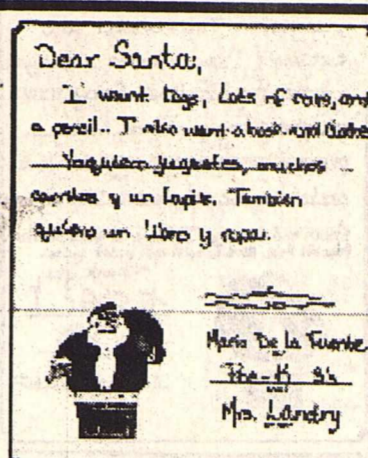 Dear Santa,
I want toys, Lots of cars, and
a pencil.. I also want a book and Clothes
Yo quiero juguetes, muchos
carritos y un lapiz. Tambien
quiero un libro y ropa.
Mario De La Fuente
Pre-K 3's
Mrs. Landry